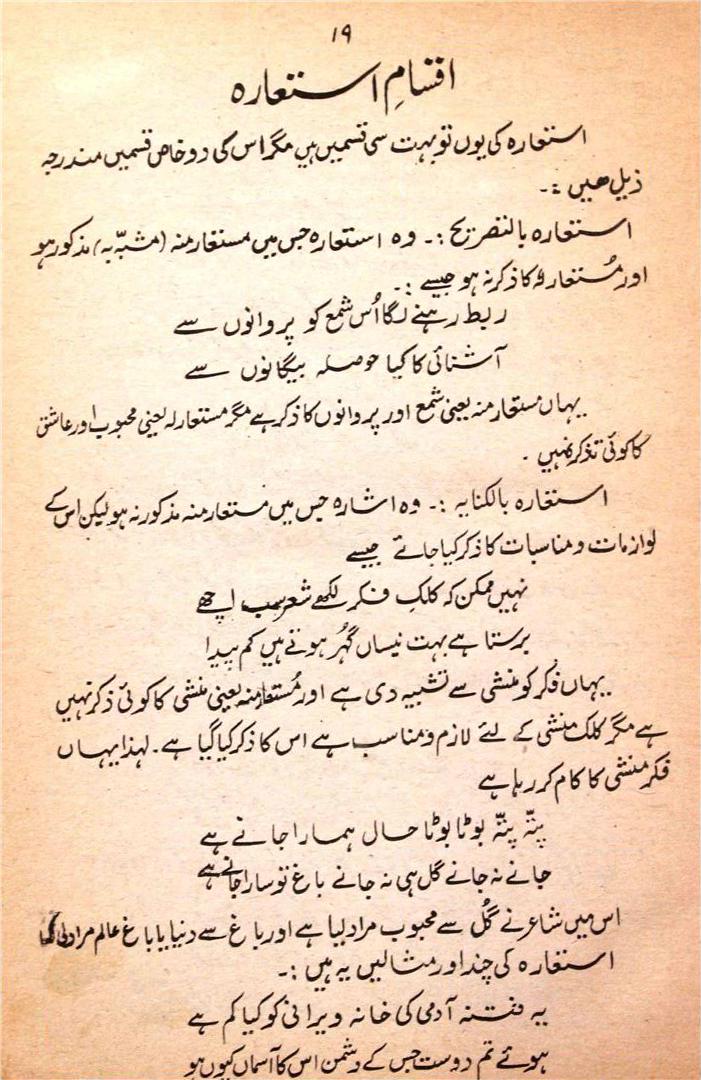 ۱۹
اقسامِ استعارہ
استعارہ کی یوں تو بہت سی قسمیں ہیں مگر اس کی دو خاص قسمیں مندرجہ
ذیل ھیں :۔
استعارہ بالتصریح :۔ وہ استعارہ جس میں مستعار منہ (مشبّہ بہ) مذکور ہو
اور مُستعار لہٗ کا ذکر نہ ہو جیسے :۔
ربط رہنے لگا اُس شمع کو پروانوں سے
آشنائی کا کیا حوصلہ بیگانوں سے
یہاں مستعار منہ یعنی شمع اور پروانوں کا ذکر ہے مگر مستعار لہ یعنی محبوب اور عاشق
کا کوئی تذکرہ نہیں ۔
استعارہ بالکنایہ :۔ وہ اشارہ جس میں مستعار منہ مذکور نہ ہو لیکن اس کے
لوازمات و مناسبات کا ذکر کیا جائے جیسے
نہیں ممکن کہ کلکِ فکر لکھے شعر سب اچھے
برستا ہے بہت نیساں گہُر ہوتے ہیں کم پیدا
یہاں فکر کو منشی سے تشبیہ دی ہے اور مُستعار منہ یعنی منشی کا کوئی ذکر نہیں
ہے مگر کلک منشی کے لئے لازم و مناسب ہے اس کا ذکر کیا گیا ہے۔ لہذا یہاں
فکر منشی کا کام کر رہا ہے
پتّہ پتّہ بوٹا بوٹا حال ہمارا جانے ہے
جانے نہ جانے گل ہی نہ جانے باغ تو سارا جانے ہے
اس میں شاعر نے گُل سے محبوب مراد لیا ہے اور باغ سے دنیا یا باغ عالم مراد لیا
استعارہ کی چند اور مثالیں یہ ہیں :۔
یہ فتنہ آدمی کی خانہ ویرانی کو کیا کم ہے
ہوئے تم دوست جس کے دشمن اس کا آسماں کیوں ہو